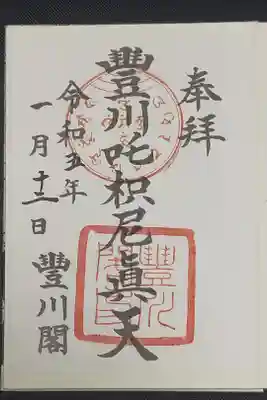 奉拝
豐川吒枳尼眞天
令和五年
一月十一日
豐川閣